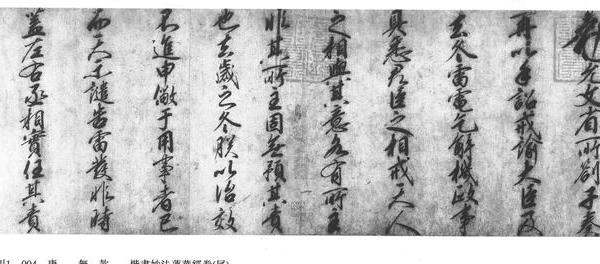 允文省所劄子奏
再以手詔戒諭大臣及
去冬雷電乞解機政事
具悉君臣之相戒天人
之相與其意各有所主
非其所主固無預其責
也去歲之冬朕以治效
不進申儆于用事者已
而天示譴告雷發非時
蓋左右丞相實任其責
004 唐 無 款 楷書妙法蓮華經卷(尾)